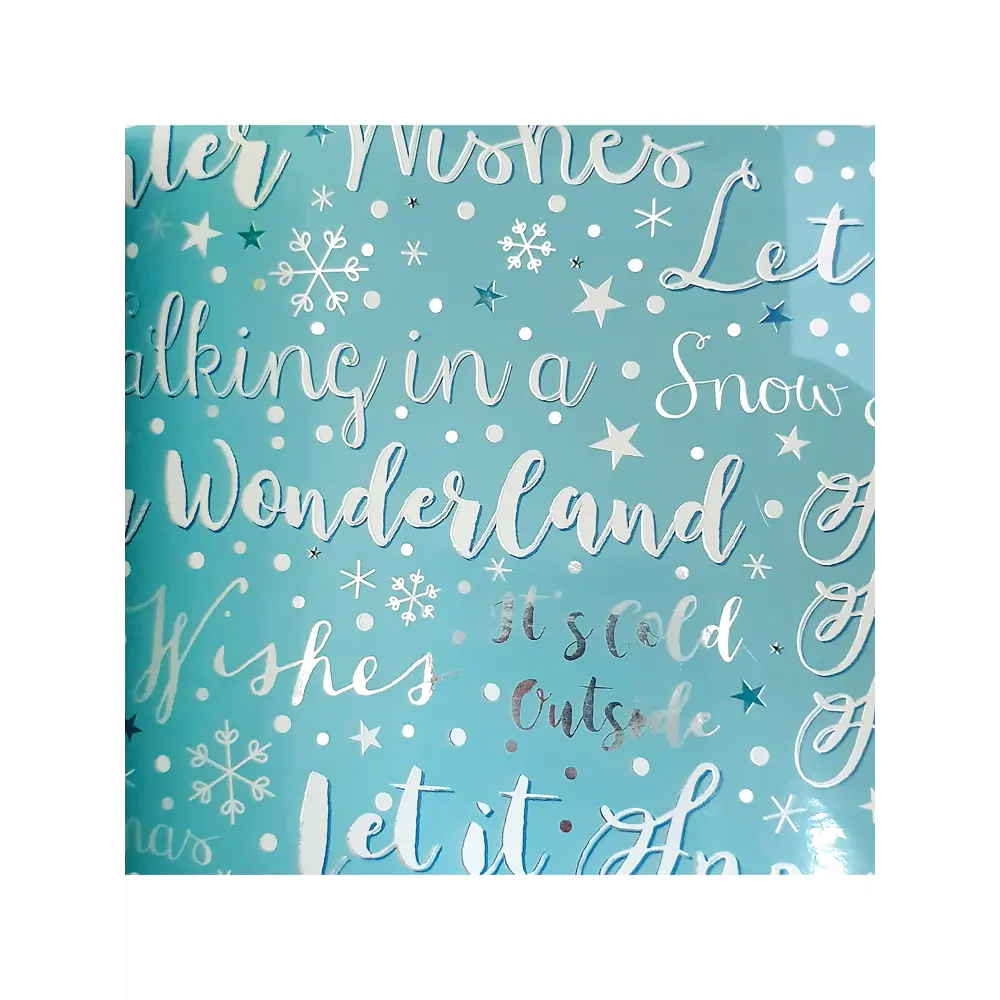 Wishes
Let
alking in a
Snow
Wonderland
Wishes
It's Cold
Outside
Let it
mas